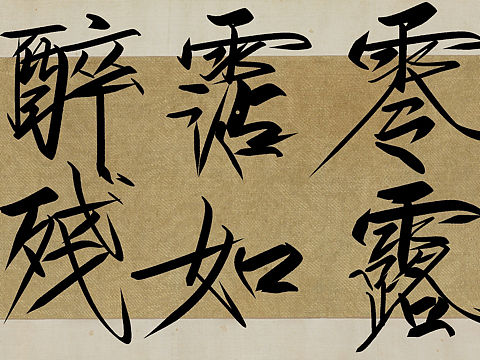 零露
霑如
醉残